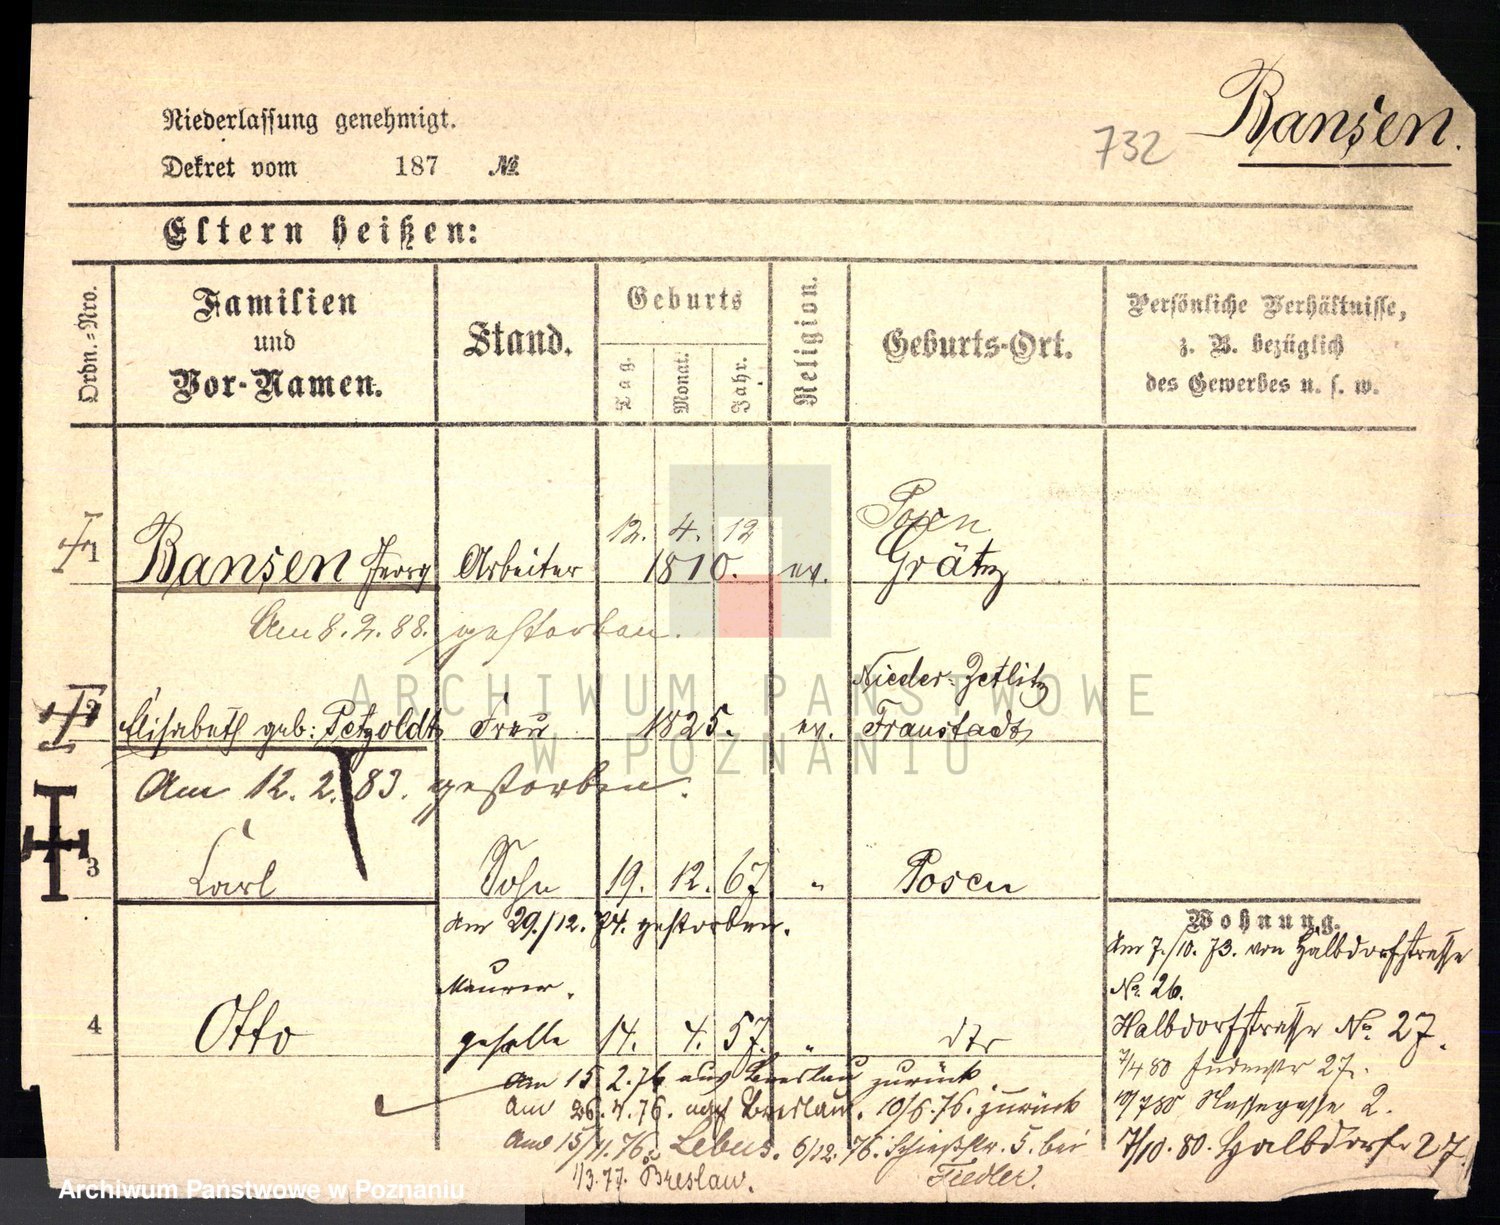 Niederlassung genehmigt.
Dekret vom 187 №
732
Bansen.
Eltern heißen:
Ordn.-Nro.
Familien
und
Vor-Namen.
Stand.
Geburts
Tag.
Monat.
Jahr.
Religion.
Geburts-Ort.
Persönliche Verhältnisse,
z. B. bezüglich
des Gewerbes u. s. w.
Posen
12. 4. 12
1 Bansen Georg Arbeiter 1810. ev. Grätz
Am 8. 2. 88. gestorben.
Nieder-Zetlitz
2 Elisabeth geb: Petzoldt Frau 1825. ev. Fraustadt
Am 12. 2. 83. gestorben.
3 Carl Sohn 19. 12. 67 " Posen
Am 29./12. 74. gestorben.
Maurer-
4 Otto geselle 14. 4. 57. " dto
Am 15 2.76 aus Breslau zurück
Am 26. 4. 76. nach Breslau. 10/6. 76. zurück
Am 15/11. 76. Lebus. 6/12. 76. Schießstr. 5. bei
Fiedler.
1/3. 77. Breslau.
Wohnung.
Am 7./10. 73. von Halbdorfstrasse
No. 26.
Halbdorfstrasse No. 27.
7/4 80 27.
2.
7/10. 80. Halbdorf 27.
ARCHIWUM PAŃSTWOWE
W POZNANIU
Archiwum Państwowe w Poznaniu